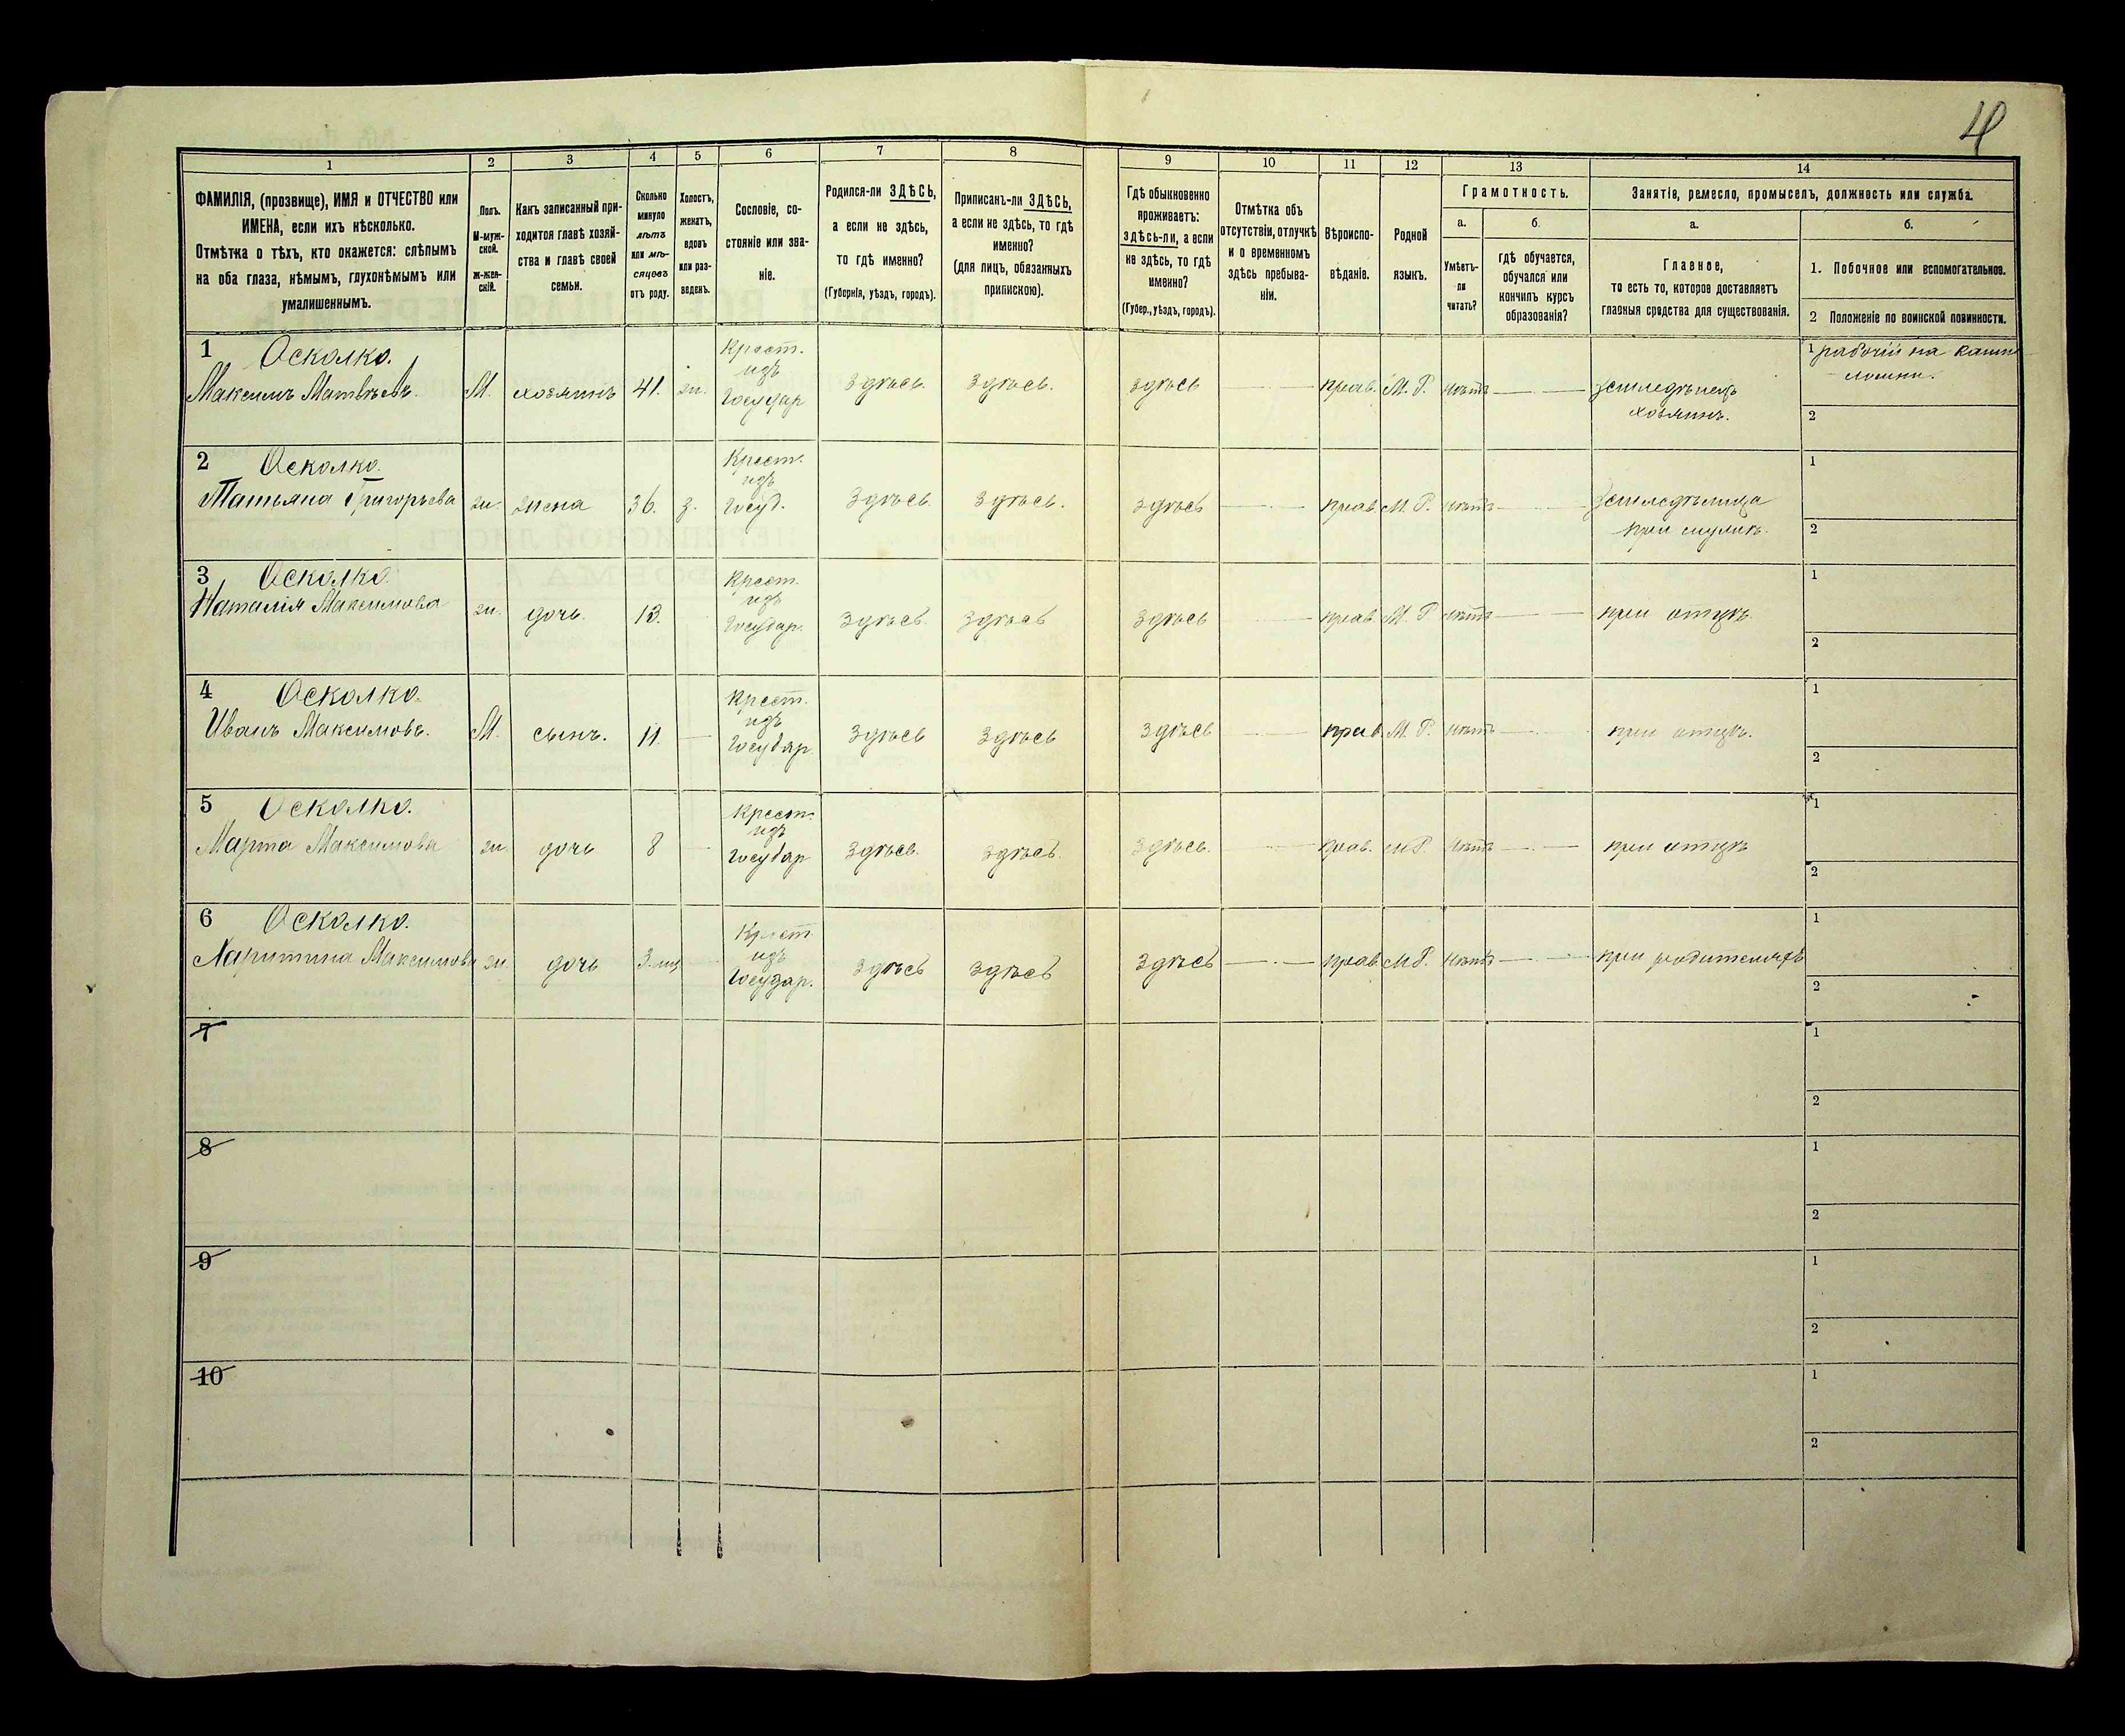 4
1 2 3 4 5 6 7 8 9 10 11 12 13 14
ФАМИЛІЯ, (прозвище), ИМЯ и ОТЧЕСТВО или
ИМЕНА, если ихъ нѣсколько.
Отмѣтка о тѣхъ, кто окажется: слѣпымъ
на оба глаза, нѣмымъ, глухонѣмымъ или
умалишеннымъ.
Полъ.
М-муж-
ской.
Ж-жен-
скій.
Какъ записанный при-
ходится главѣ хозяй-
ства и главѣ своей
семьи.
Сколько
минуло
лѣтъ
или мѣ-
сяцовъ
отъ роду.
Холостъ,
женатъ,
вдовъ
или раз-
веденъ.
Сословіе, со-
стояніе или зва-
ніе.
Родился-ли ЗДѢСЬ,
а если не здѣсь,
то гдѣ именно?
(Губернія, уѣздъ, городъ).
Приписанъ-ли ЗДѢСЬ,
а если не здѣсь, то гдѣ
именно?
(для лицъ, обязанныхъ
припискою).
Гдѣ обыкновенно
проживаетъ:
здѣсь-ли, а если
не здѣсь, то гдѣ
именно?
(Губер., уѣздъ, городъ).
Отмѣтка объ
отсутствіи, отлучкѣ
и о временномъ
здѣсь пребыва-
ніи.
Вѣроиспо-
вѣданіе.
Родной
языкъ.
Грамотность.
а.
Умѣетъ-
ли
читать?
б.
гдѣ обучается,
обучался или
кончилъ курсъ
образованія?
Занятія, ремесло, промыселъ, должность или служба.
а.
Главное,
то есть то, которое доставляетъ
главныя средства для существованія.
б.
1. Побочное или вспомогательное.
2 Положеніе по воинской повинности.
1 Осколко. Крест. 1 рабочій на
изъ
Максимъ Матвѣевъ. М. хозяинъ 41. ж. Государ здѣсь. здѣсь. здѣсь прав. М. Р. нѣтъ земледѣлецъ
хозяинъ. 2
2 Осколко. Крест. 1
изъ
Татьяна Григорьева ж. жена 36. з. Госуд. здѣсь. здѣсь. здѣсь прав. М. Р. нѣтъ земледѣлица
при мужѣ. 2
3 Осколко. Крест. 1
изъ
Наталія Максимова ж. дочь. 13. Государ. здѣсь. здѣсь здѣсь прав. М. Р нѣтъ при отцѣ.
2
4 Осколко. Крест. 1
изъ
Иванъ Максимовъ. М. сынъ. 11. Государ здѣсь здѣсь здѣсь прав. М. Р. нѣтъ при отцѣ.
2
5 Осколко. Крест. 1
изъ
Марта Максимова ж. дочь 8 Государ здѣсь. здѣсь. здѣсь. прав. М Р. нѣтъ при отцѣ
2
6 Осколко. Крест. 1
изъ
Максимова ж. дочь 3. мц Государ. здѣсь здѣсь здѣсь прав. М Р. нѣтъ при родителяхъ
2
7 1
2
8 1
2
9 1
2
10 1
2